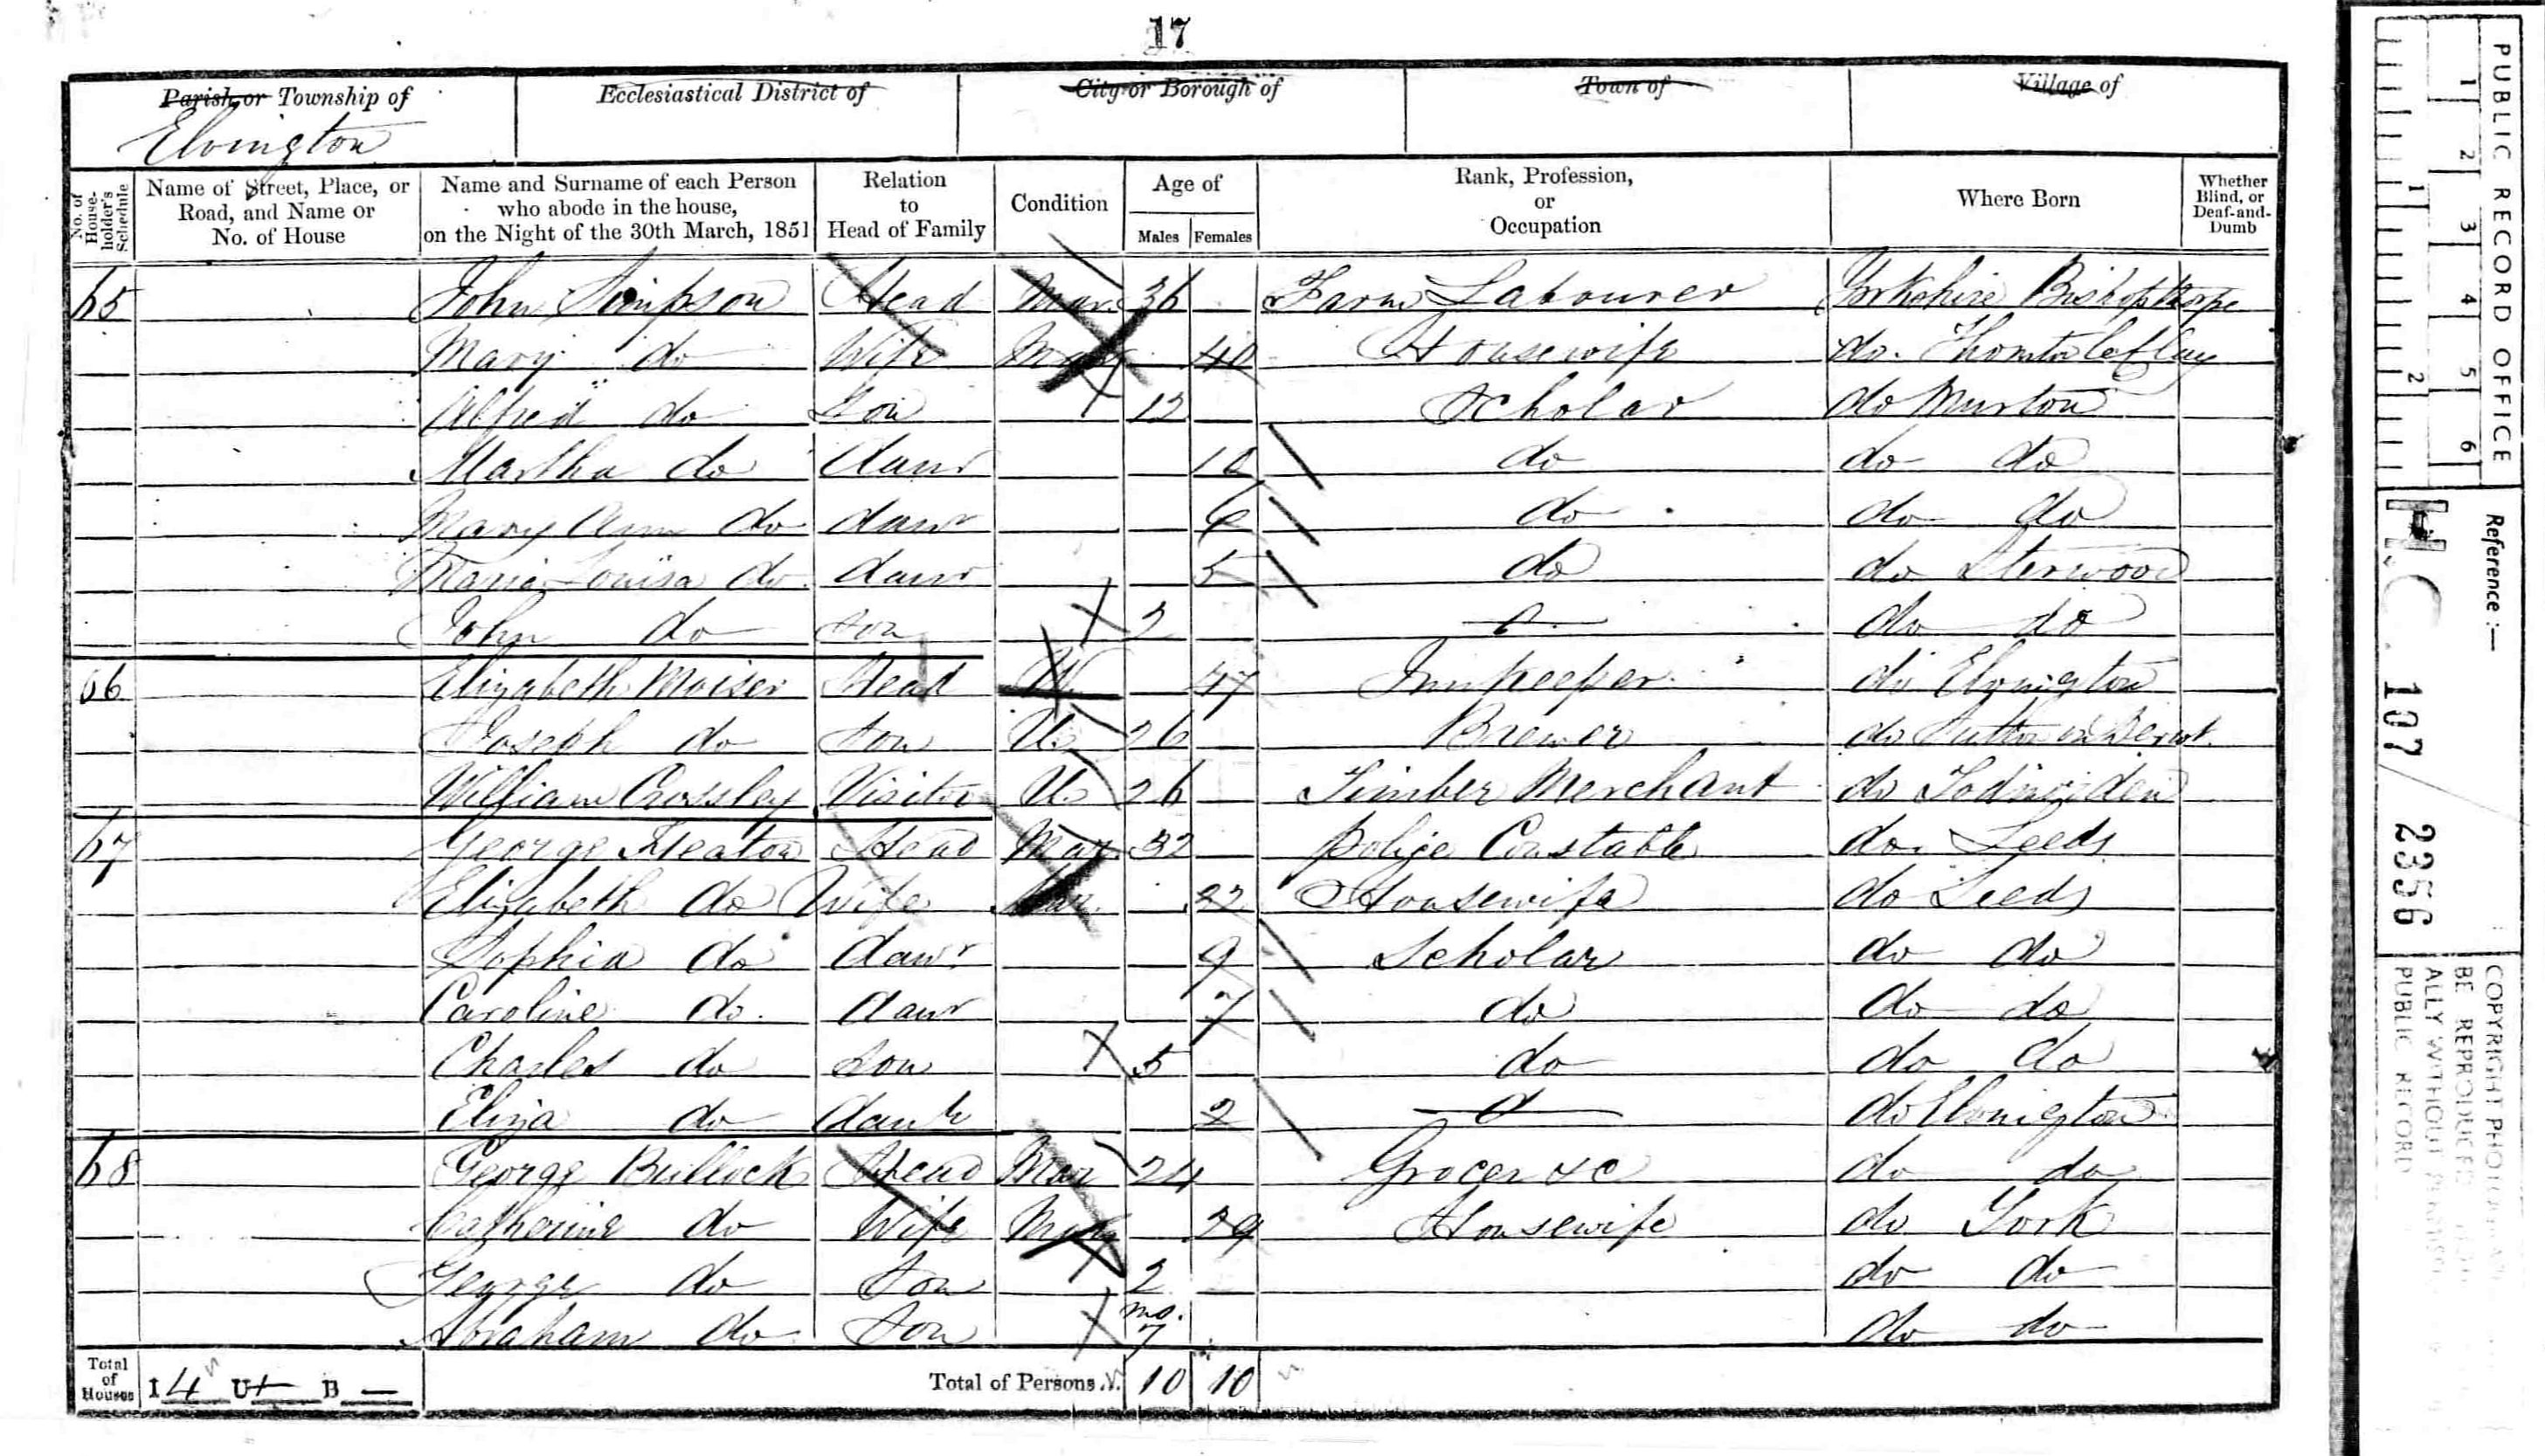 17
Parish or Township of Ecclesiastical District of City or Borough of Town of Village of
Elvington
No. of House-holder's Schedule Name of Street, Place, or Road, and Name or No. of House Name and Surname of each Person who abode in the house, on the Night of the 30th March, 1851 Relation to Head of Family Condition Age of Males Females Rank, Profession, or Occupation Where Born Whether Blind, or Deaf-and-Dumb
65 John Simpson Head Mar. 36 Farm Labourer Yorkshire Bishopthorpe
Mary do Wife Mar 40 Housewife do. Thornton le Clay
Alfred do Son 12 Scholar do Murton
Martha do daur do do do
Mary Ann do daur 6 do do do
Maria Louisa do daur 5 do do Storwood
John do son 2 do do
66 Elizabeth Moiser Head W. 47 Innkeeper do Elvington
Joseph do son U. 26 Brewer do Sutton on Derwt.
William Crossley Visitor U. 26 Timber Merchant do Todmorden
67 George Heaton Head Mar. 32 Police Constable do. Leeds
Elizabeth do Wife Mar. Housewife do Leeds
Sophia do daur 9 Scholar do do
Caroline do. daur 7 do do do
Charles do son 5 do do do
Eliza do daur 2 do Elvington
68 George Bullock Head Mar 24 Grocer &c do do
Catherine do Wife Mar 29 Housewife do York
George do Son 2 do do
Abraham do Son mo. 7 do do
Total of Houses I 4 U B — Total of Persons 10 10
PUBLIC RECORD OFFICE
1 2 3 4 5 6
1 2
Reference :—
H.O. 107/2356
COPYRIGHT
BE REPRODUCED
ALLY WITHOUT
PUBLIC RECORD